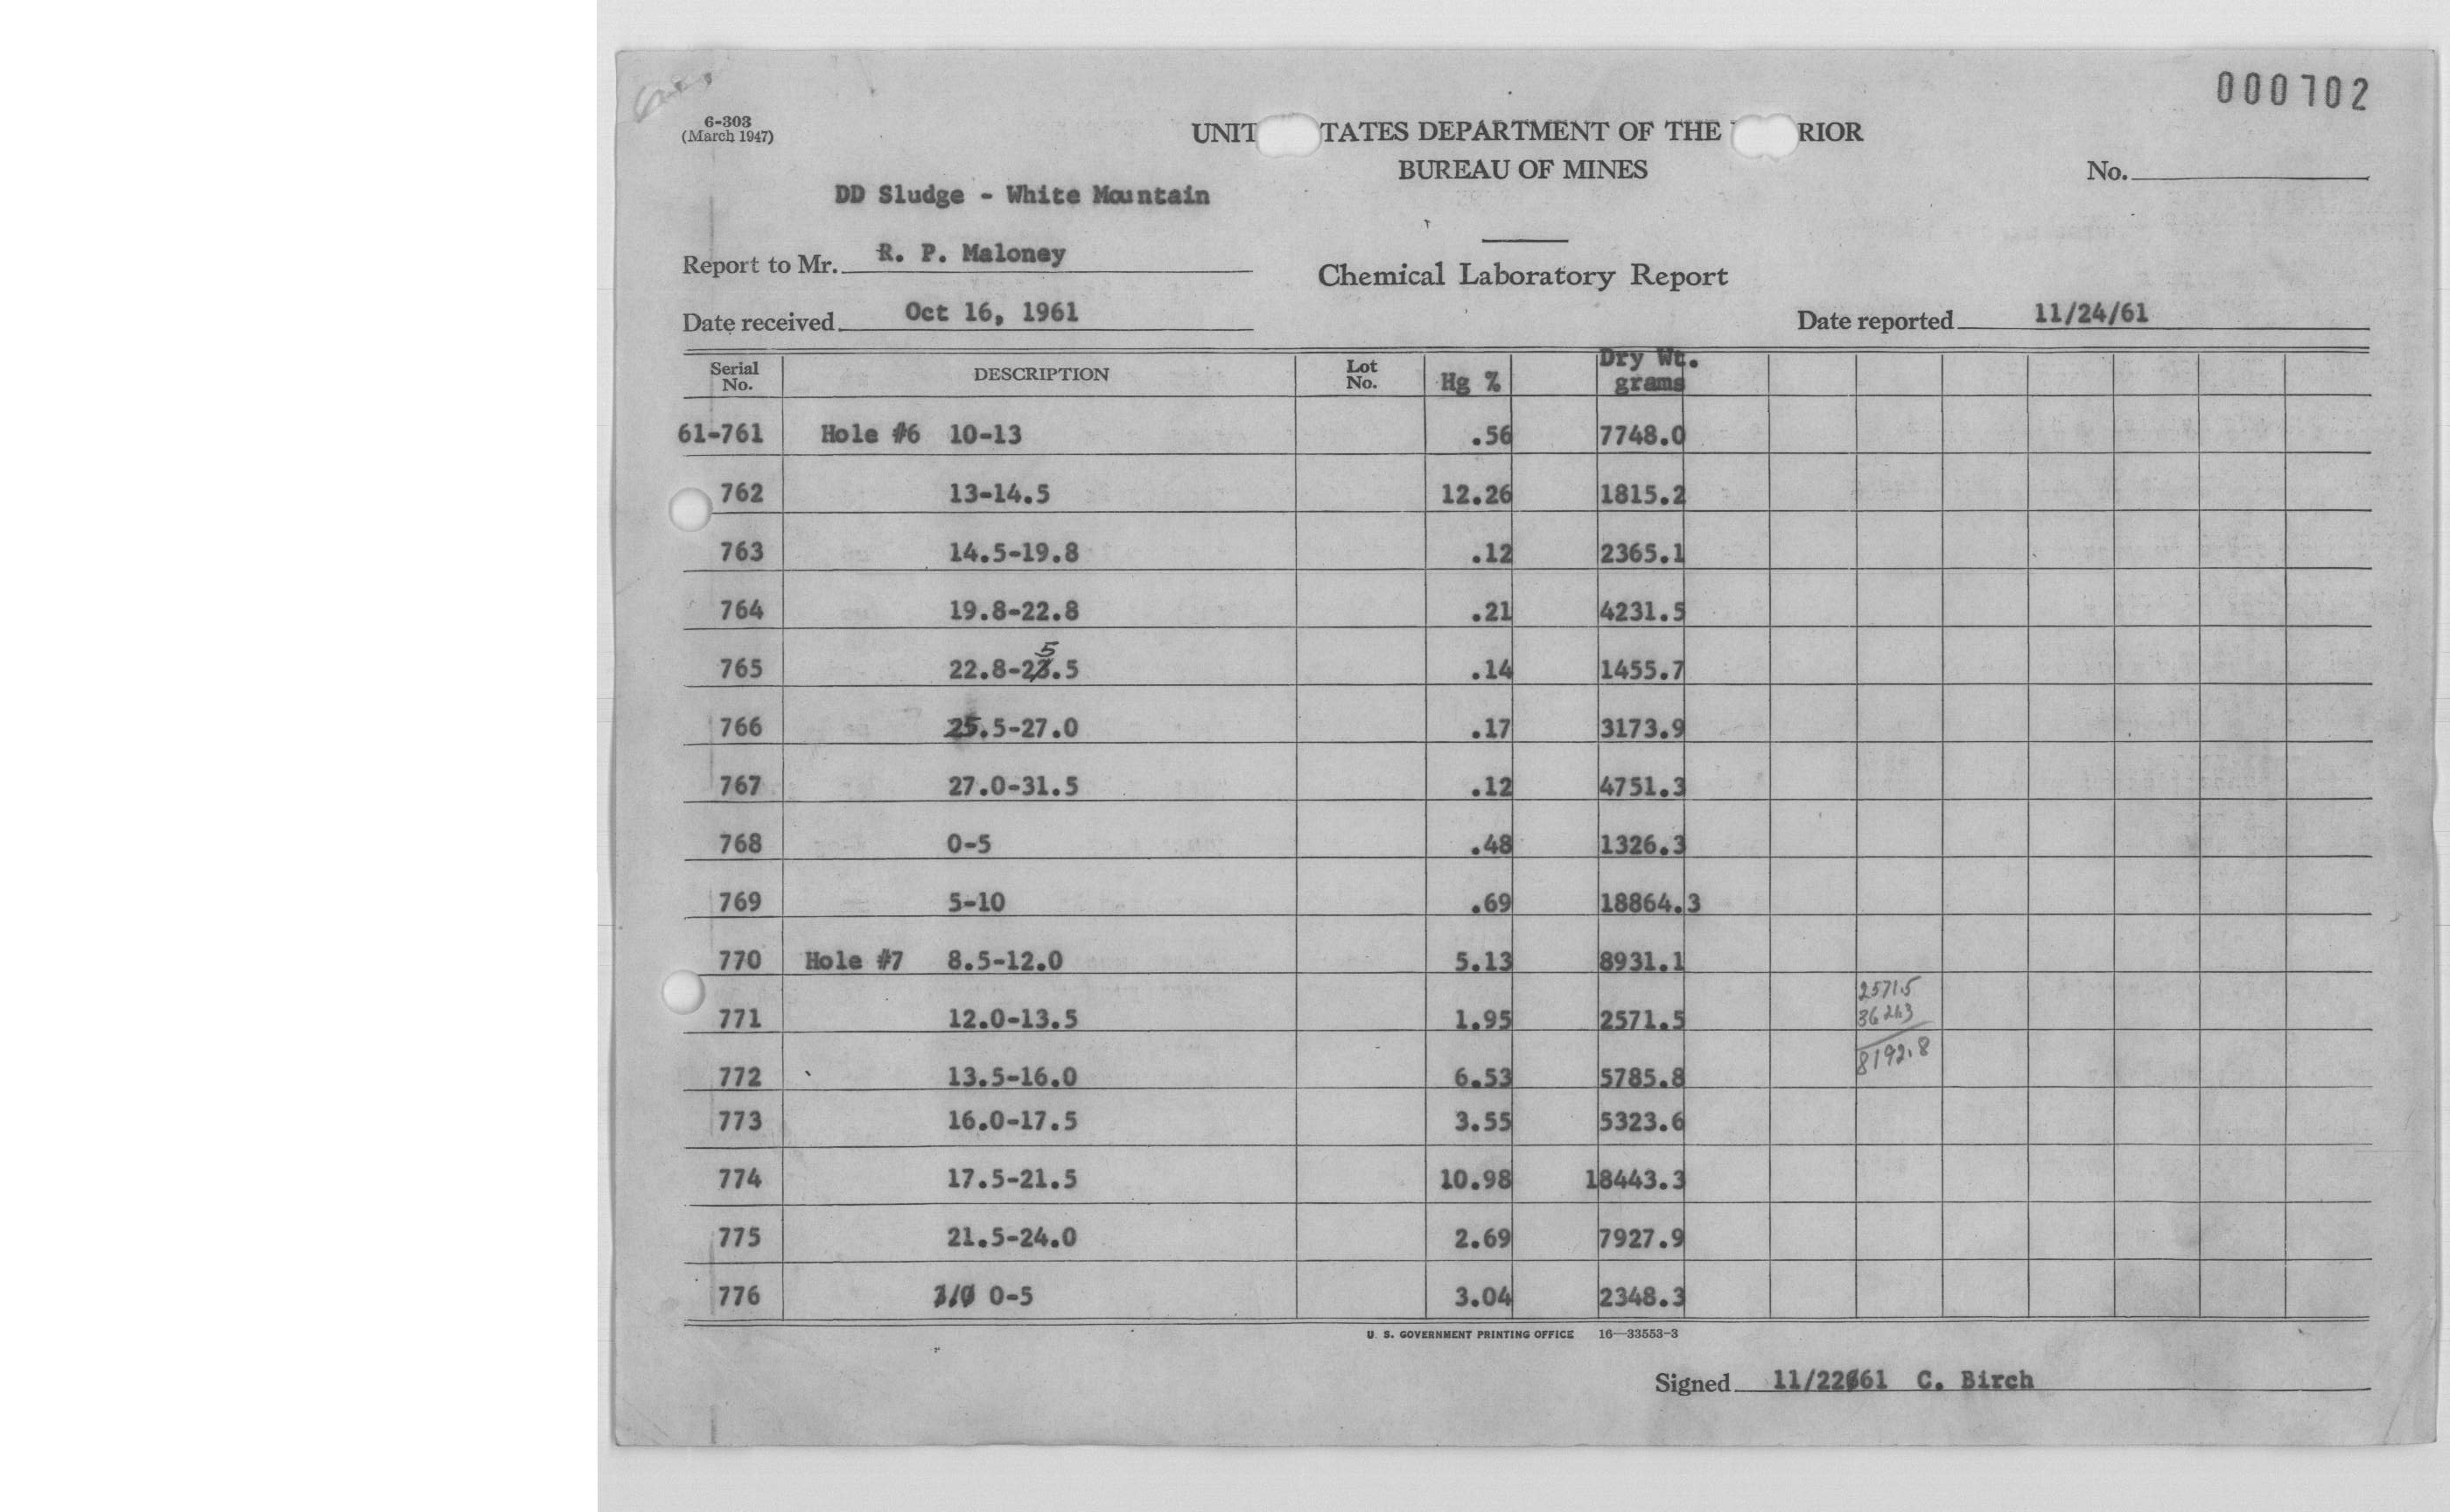 000702
6-303
(March 1947)
UNIT TATES DEPARTMENT OF THE RIOR
BUREAU OF MINES
No.
DD Sludge - White Mountain
Report to Mr. R. P. Maloney
Chemical Laboratory Report
Date received Oct 16, 1961
Date reported 11/24/61
Serial No. DESCRIPTION Lot No. Hg % Dry Wt. grams
61-761 Hole #6 10-13 .56 7748.0
762 13-14.5 12.26 1815.2
763 14.5-19.8 .12 2365.1
764 19.8-22.8 .21 4231.5
765 22.8-25.5 .14 1455.7
766 25.5-27.0 .17 3173.9
767 27.0-31.5 .12 4751.3
768 0-5 .48 1326.3
769 5-10 .69 18864.3
770 Hole #7 8.5-12.0 5.13 8931.1
2571.5
771 12.0-13.5 1.95 2571.5
8192.8
772 13.5-16.0 6.53 5785.8
773 16.0-17.5 3.55 5323.6
774 17.5-21.5 10.98 18443.3
775 21.5-24.0 2.69 7927.9
776 0-5 3.04 2348.3
U. S. GOVERNMENT PRINTING OFFICE 16—33553-3
Signed 11/22/61 C. Birch